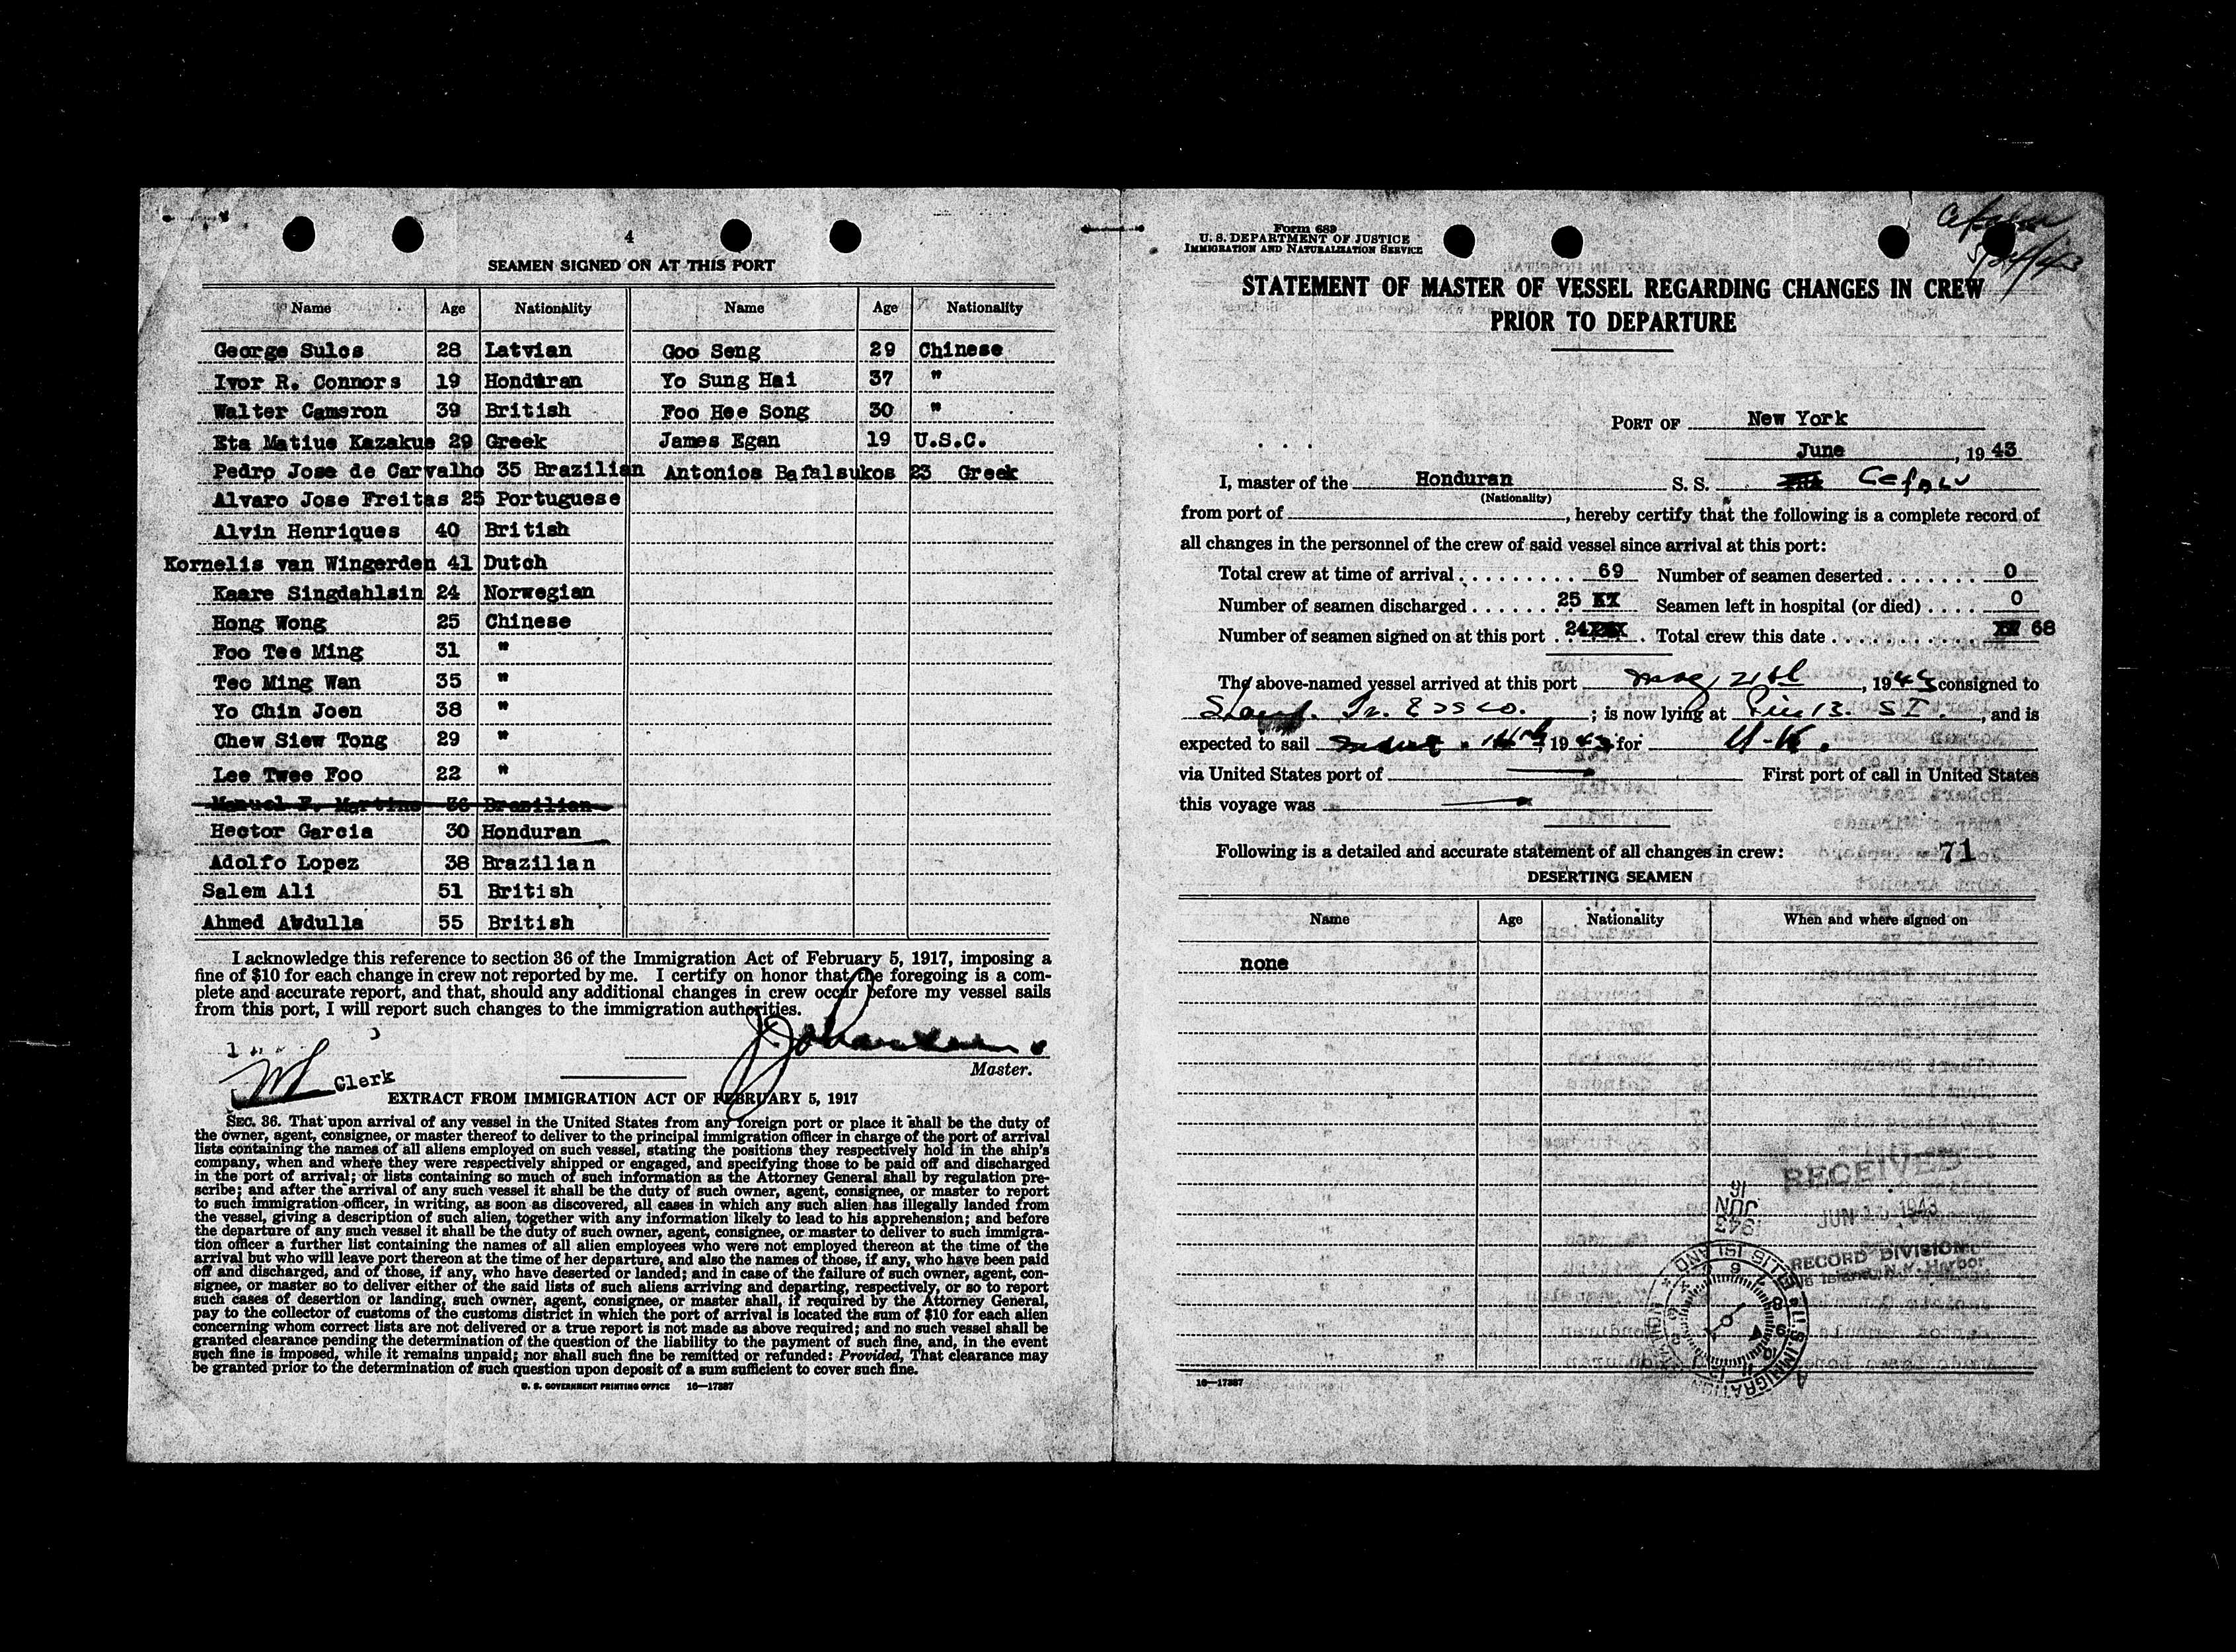 4
SEAMEN SIGNED ON AT THIS PORT
Name Age Nationality Name Age Nationality
George Sulos 28 Latvian Goo Seng 29 Chinese
Ivor R. Connors 19 Honduran Yo Sung Hai 37 "
Walter Cameron 39 British Foo Hee Song 30 "
Eta Matius Kazakus 29 Greek James Egan 19 U.S.C.
Pedro Jose de Carvalho 35 Brazilian Antonios Bafalsukos 23 Greek
Alvaro Jose Freitas 25 Portuguese
Alvin Henriques 40 British
Kornelis van Wingerden 41 Dutch
Kaare Singdahlsin 24 Norwegian
Hong Wong 25 Chinese
Foo Tee Ming 31 "
Teo Ming Wan 35 "
Yo Chin Joen 38 "
Chew Siew Tong 29 "
Lee Twee Foo 22 "
Manuel F. Martins 36 Brazilian
Hector Garcia 30 Honduran
Adolfo Lopez 38 Brazilian
Salem Ali 51 British
Ahmed Abdulla 55 British
I acknowledge this reference to section 36 of the Immigration Act of February 5, 1917, imposing a
fine of $10 for each change in crew not reported by me. I certify on honor that the foregoing is a com-
plete and accurate report, and that, should any additional changes in crew occur before my vessel sails
from this port, I will report such changes to the immigration authorities.
Master.
Clerk
EXTRACT FROM IMMIGRATION ACT OF FEBRUARY 5, 1917
SEC. 36. That upon arrival of any vessel in the United States from any foreign port or place it shall be the duty of
the owner, agent, consignee, or master thereof to deliver to the principal immigration officer in charge of the port of arrival
lists containing the names of all aliens employed on such vessel, stating the positions they respectively hold in the ship's
company, when and where they were respectively shipped or engaged, and specifying those to be paid off and discharged
in the port of arrival; or lists containing so much of such information as the Attorney General shall by regulation pre-
scribe; and after the arrival of any such vessel it shall be the duty of such owner, agent, consignee, or master to report
to such immigration officer, in writing, as soon as discovered, all cases in which any such alien has illegally landed from
the vessel, giving a description of such alien, together with any information likely to lead to his apprehension; and before
the departure of any such vessel it shall be the duty of such owner, agent, consignee, or master to deliver to such immigra-
tion officer a further list containing the names of all alien employees who were not employed thereon at the time of the
arrival but who will leave port thereon at the time of her departure, and also the names of those, if any, who have been paid
off and discharged, and of those, if any, who have deserted or landed; and in case of the failure of such owner, agent, con-
signee, or master so to deliver either of the said lists of such aliens arriving and departing, respectively, or so to report
such cases of desertion or landing, such owner, agent, consignee, or master shall, if required by the Attorney General,
pay to the collector of customs of the customs district in which the port of arrival is located the sum of $10 for each alien
concerning whom correct lists are not delivered or a true report is not made as above required; and no such vessel shall be
granted clearance pending the determination of the question of the liability to the payment of such fine, and, in the event
such fine is imposed, while it remains unpaid; nor shall such fine be remitted or refunded: Provided, That clearance may
be granted prior to the determination of such question upon deposit of a sum sufficient to cover such fine.
U. S. GOVERNMENT PRINTING OFFICE 16—17887
Form 689
U. S. DEPARTMENT OF JUSTICE
IMMIGRATION AND NATURALIZATION SERVICE
STATEMENT OF MASTER OF VESSEL REGARDING CHANGES IN CREW
PRIOR TO DEPARTURE
PORT OF New York
June, 1943
I, master of the Honduran S. S. Cefalu
(Nationality)
from port of , hereby certify that the following is a complete record of
all changes in the personnel of the crew of said vessel since arrival at this port:
Total crew at time of arrival 69 Number of seamen deserted 0
Number of seamen discharged 25 Seamen left in hospital (or died) 0
Number of seamen signed on at this port 24 Total crew this date 68
The above-named vessel arrived at this port May 21st, 1943 consigned to
; is now lying at Pier 13. S I., and is
expected to sail 1943 for U-K.
via United States port of First port of call in United States
this voyage was
Following is a detailed and accurate statement of all changes in crew: 71
DESERTING SEAMEN
Name Age Nationality When and where signed on
none
RECEIVED
JUN 16 1943
RECORD DIVISION
Ellis Island, N.Y. Harbor
16 JUN 1943
ELLIS ISLAND U.S. IMMIGRATION
16—17887